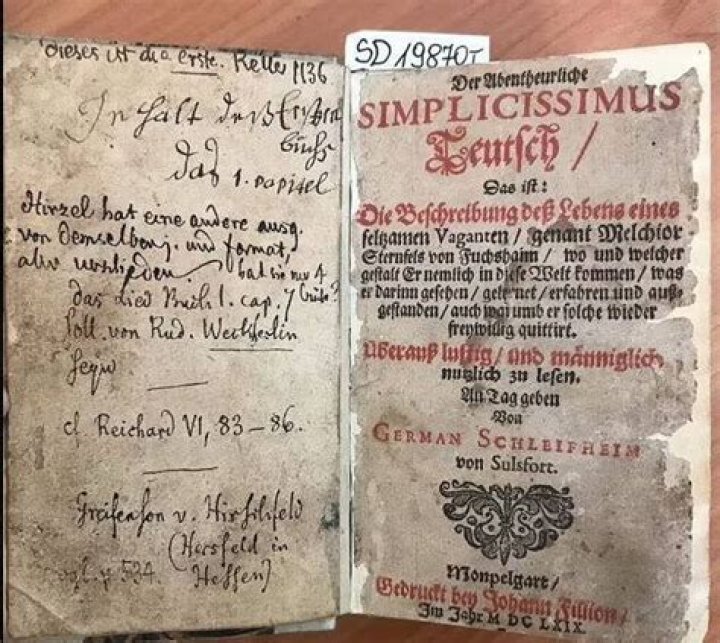 dieses ist die erste. Keller 1136
Inhalt deß Ersten
Buchs
das 1. capitel
Hirzel hat eine andere ausg.
von demselben j. und format,
aber verschieden. hat sie nur 4
das Lied Buch 1. cap. 7
soll von Rud. Weckherlin
seyn
cf. Reichard VI, 83–86.
Greifenson v. Hirschfeld
(Hersfeld in
vgl. p 534. Hessen)
SD 19870T
Der Abentheurliche
SIMPLICISSIMUS
Teutsch /
Das ist:
Die Beschreibung deß Lebens eines
seltzamen Vaganten / genant Melchior
Sternfels von Fuchshaim / wo und welcher
gestalt Er nemlich in diese Welt kommen / was
er darinn gesehen / gelernet / erfahren und auß-
gestanden / auch warumb er solche wieder
freywillig quittirt.
Uberauß lustig / und männiglich
nutzlich zu lesen.
An Tag geben
Von
GERMAN SCHLEIFHEIM
von Sulsfort.
Monpelgart /
Gedruckt bey Johann Fillion /
Im Jahr M DC LXIX.